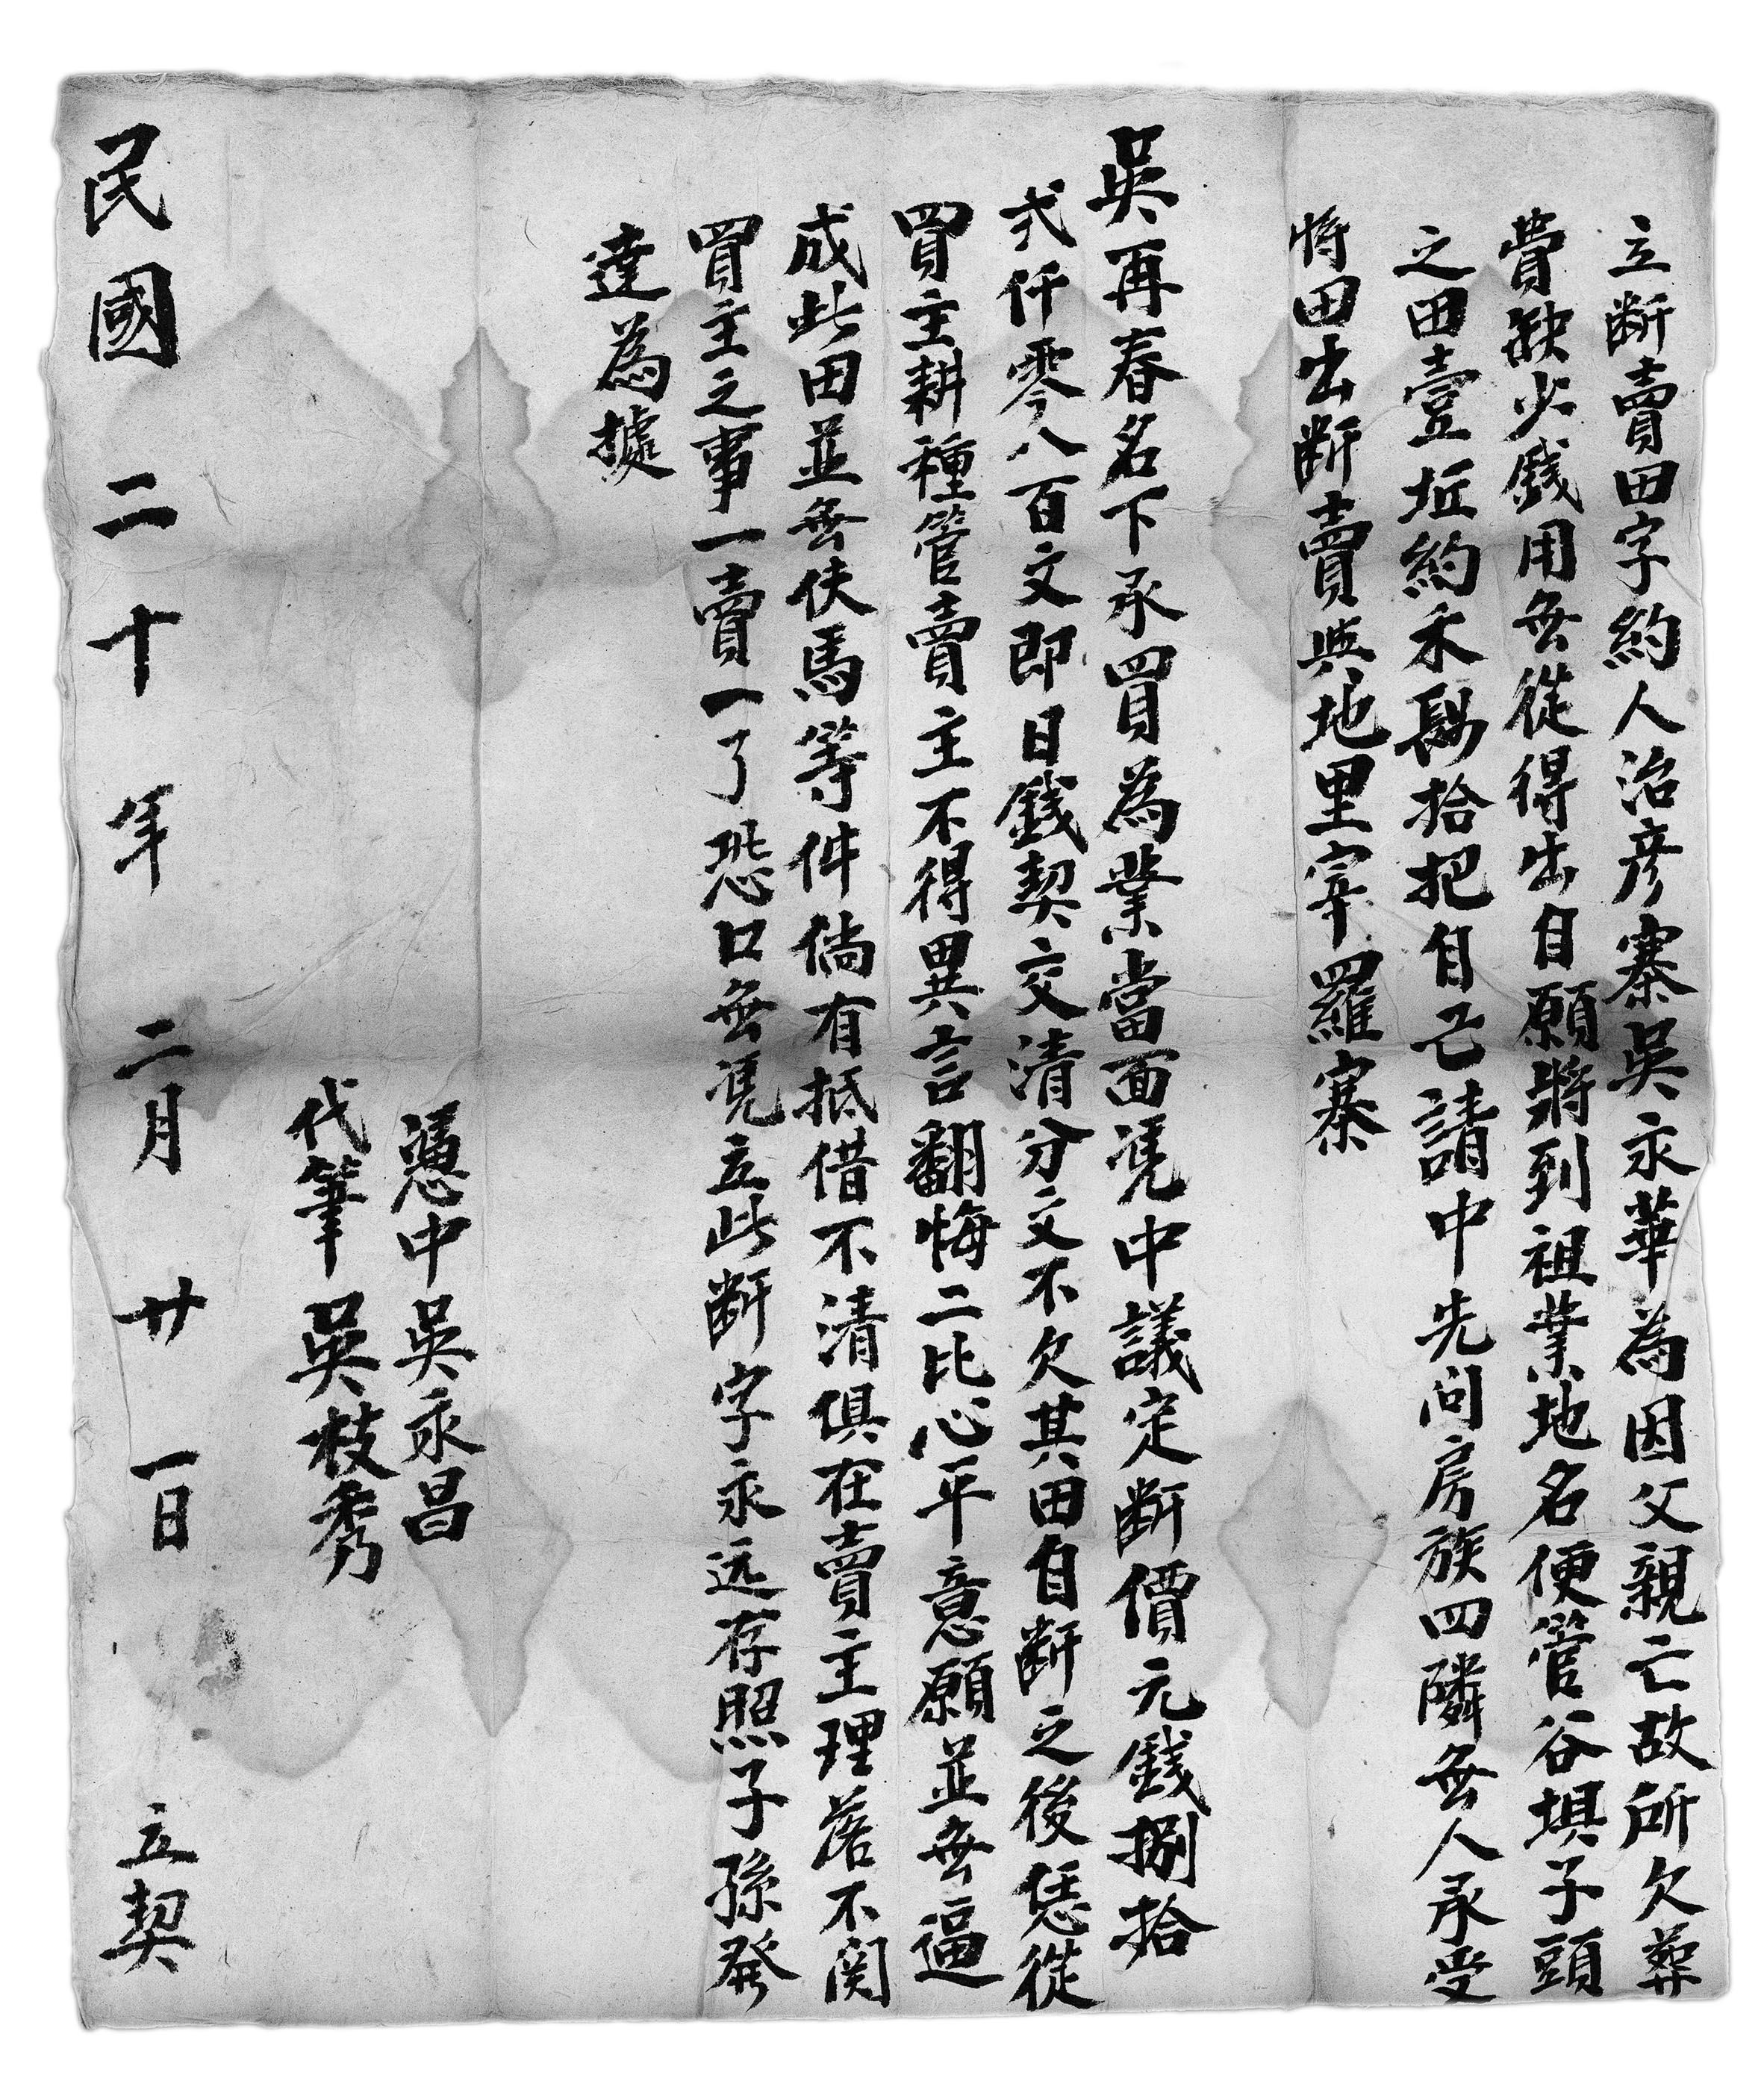 立断賣田字約人治彦寨吳永華為因父親亡故所欠葬
費缺少錢用無從得出自願將到祖業地名便管谷垻子頭
之田壹坵約禾拾把自己請中先问房族四隣無人承受
將田出断賣與地里宰羅寨
吳再春名下承買為業當面凴中議定断價元錢捌拾
弍仟零八百文即日錢契交清分文不欠其田自断之後恁從
買主耕種管賣主不得異言翻悔二比心平意願並無逼
成此田並無伕馬等件倘有抵借不清俱在賣主理落不関
買主之事一賣一了恐口無凴立此断字永远存照子孫發
達為據
憑中吳永昌
代筆吳枝秀
民國二十年二月廿一日立契